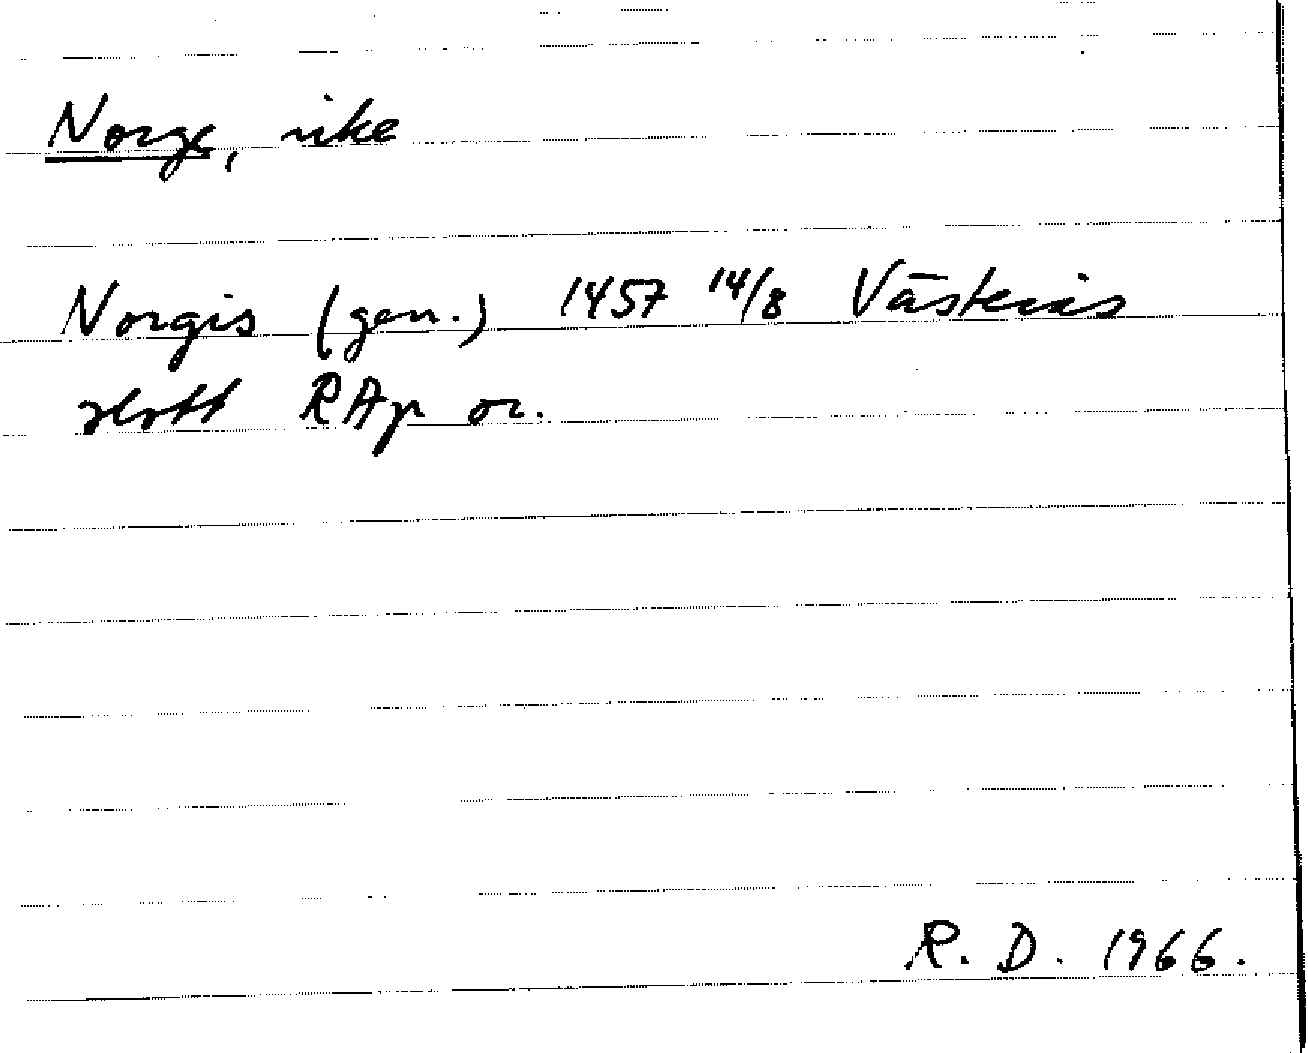 Norge, rike
Norgis (gen.) 1457 14/8 Västerås
slott RAp or.
R. D. 1966.